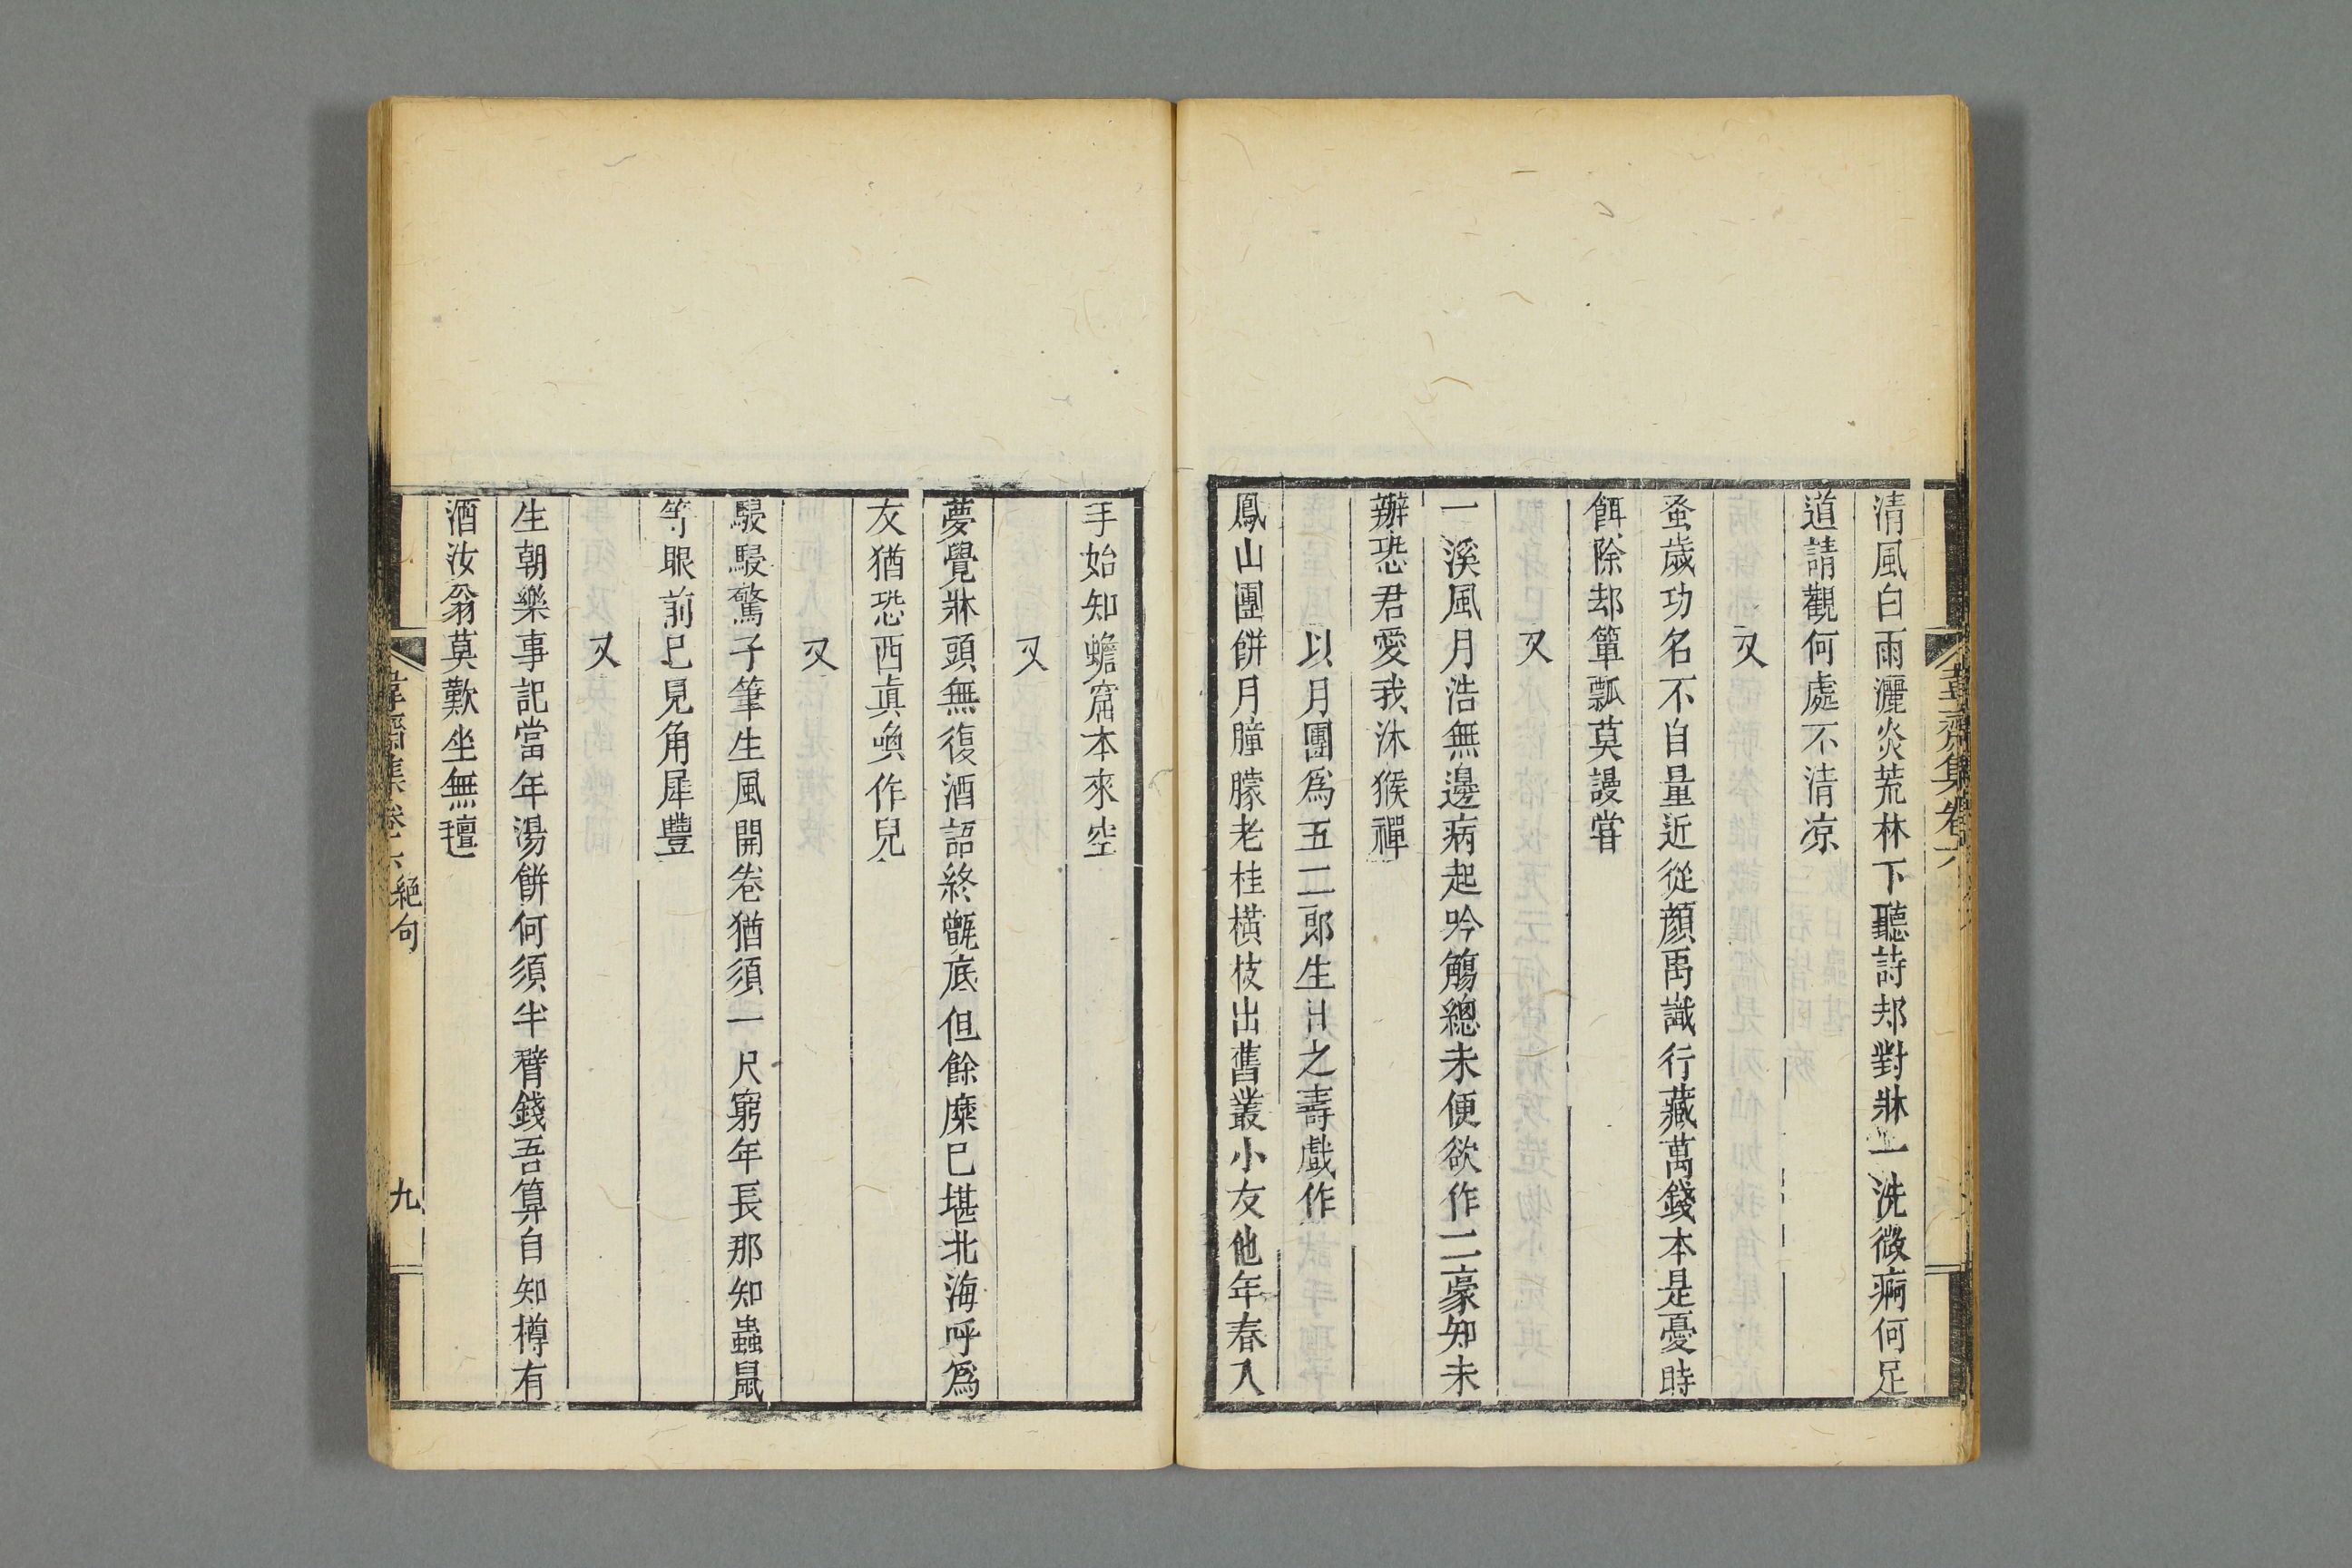 清風白雨灑炎荒林下聽詩却對牀一洗微痾何足
道請觀何處不清凉
又
蚤歲功名不自量近從顏禹識行藏萬錢本是憂時
餌除却簞瓢莫謾甞
又
一溪風月浩無邊病起吟觴總未便欲作二豪知未
辦恐君愛我沐猴禪
以月團爲五二郎生日之壽戲作
鳳山團餅月朣朦老桂橫枝出舊叢小友他年春入
手始知蟾窟本來空
又
夢覺牀頭無復酒語終甑底但餘糜已堪北海呼爲
友猶恐西眞喚作兒
又
駸駸驚子筆生風開卷猶須一尺窮年長那知蟲鼠
等眼前已見角犀豐
又
生朝樂事記當年湯餅何須半臂錢吾算自知樽有
酒汝翁莫歎坐無氊
韋齋集卷六 絕句
九